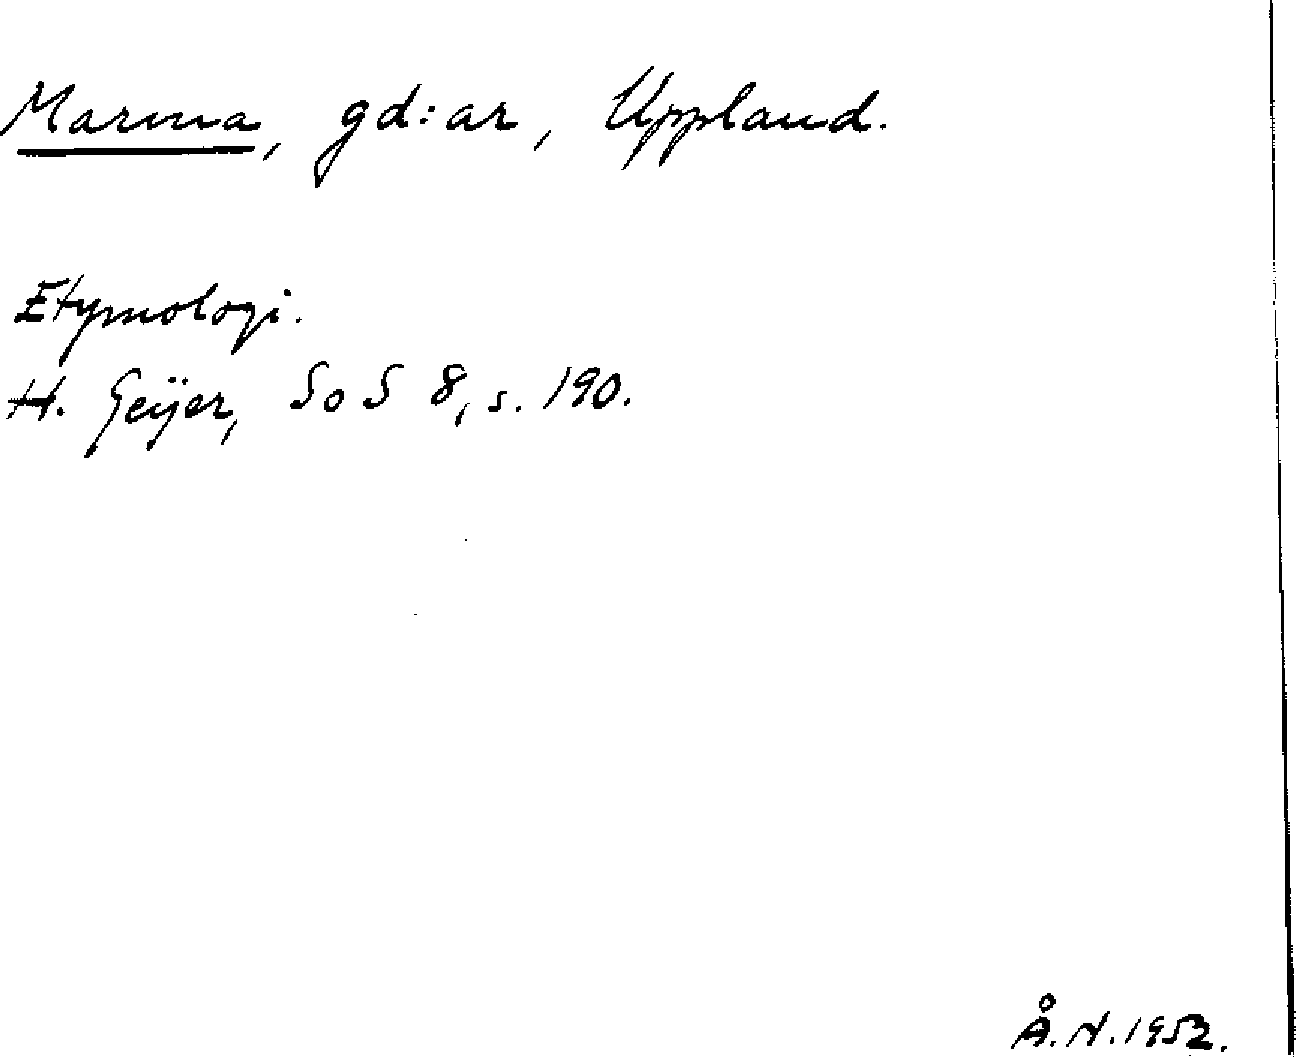 Marma, gd:ar, Uppland.
Etymologi.
H. Geijer, SoS 8, s. 190.
Å.N. 1952.